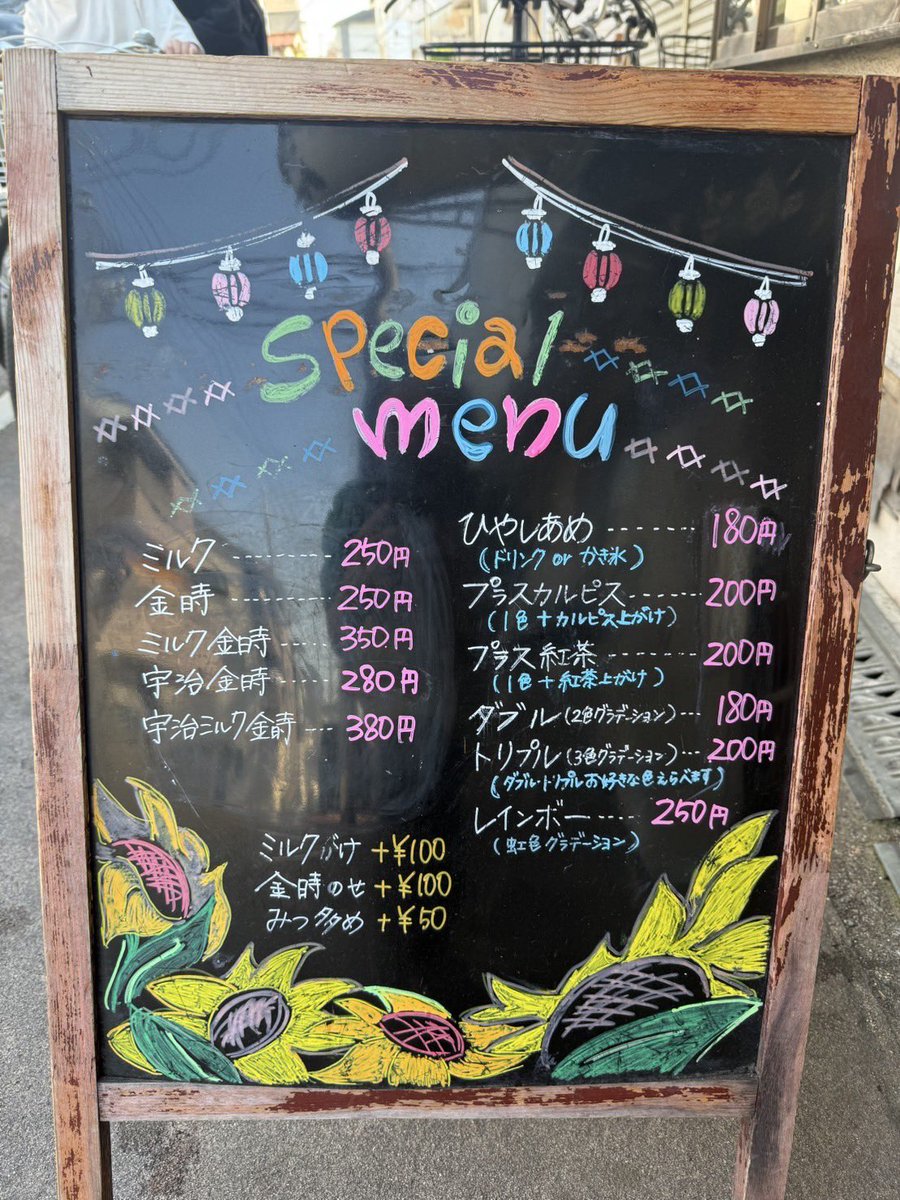 special
menu
ミルク -------- 250円
金時 -------- 250円
ミルク金時 ------ 350円
宇治金時 ------ 280円
宇治ミルク金時 --- 380円
ミルクがけ +¥100
金時のせ +¥100
みつ多め +¥50
ひやしあめ -------- 180円
(ドリンク or かき氷)
プラスカルピス ------ 200円
(1色+カルピス上がけ)
プラス紅茶 -------- 200円
(1色+紅茶上がけ)
ダブル(2色グラデーション)--- 180円
トリプル(3色グラデーション)-- 200円
(ダブル・トリプルお好きな色えらべます)
レインボー ---- 250円
(虹色グラデーション)